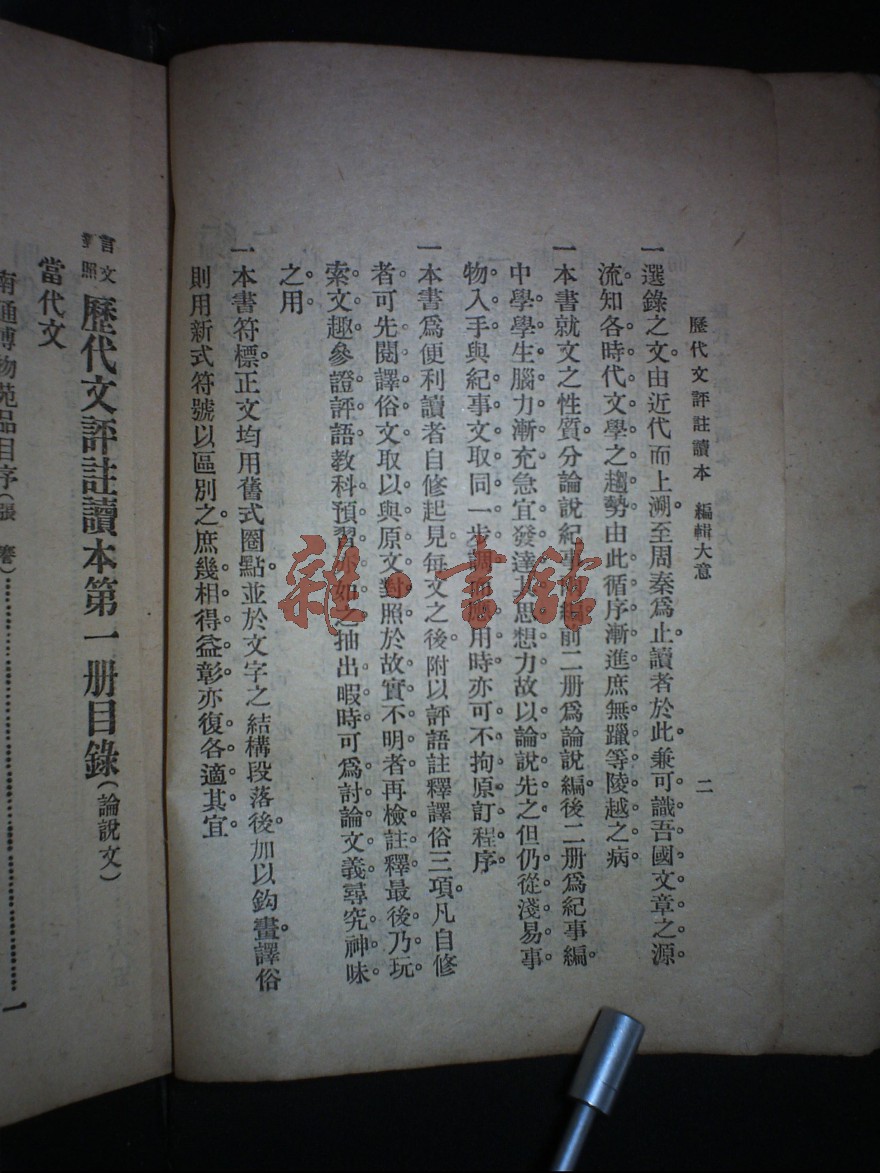 歷代文評註讀本 編輯大意 二
一選錄之文由近代而上溯至周秦爲止。讀者於此兼可識吾國文章之源
流。知各時代文學之趨勢。由此循序漸進。庶無躐等陵越之病
一本書就文之性質。分論說紀事兩編。前二册爲論說編。後二册爲紀事編。
中學學生腦力漸充。急宜發達其思想力。故以論說先之。但仍從淺易事
物入手。與紀事文取同一步調。而應用時亦可不拘原訂程序。
一本書爲便利讀者自修起見。每文之後。附以評語註釋譯俗三項。凡自修
者可先閱譯俗文。取以與原文對照。於故實不明者。再檢註釋。最後乃玩
索文趣。參證評語。教科預習亦如之。抽出暇時。可爲討論文義尋究神味
之用。
一本書符標。正文均用舊式圈點。並於文字之結構段落後加以鈎畫。譯俗
則用新式符號以區別之。庶幾相得益彰。亦復各適其宜。
言文對照 歷代文評註讀本第一册目錄（論說文）
當代文
南通博物苑品目序（張謇）…………一
雜·書館